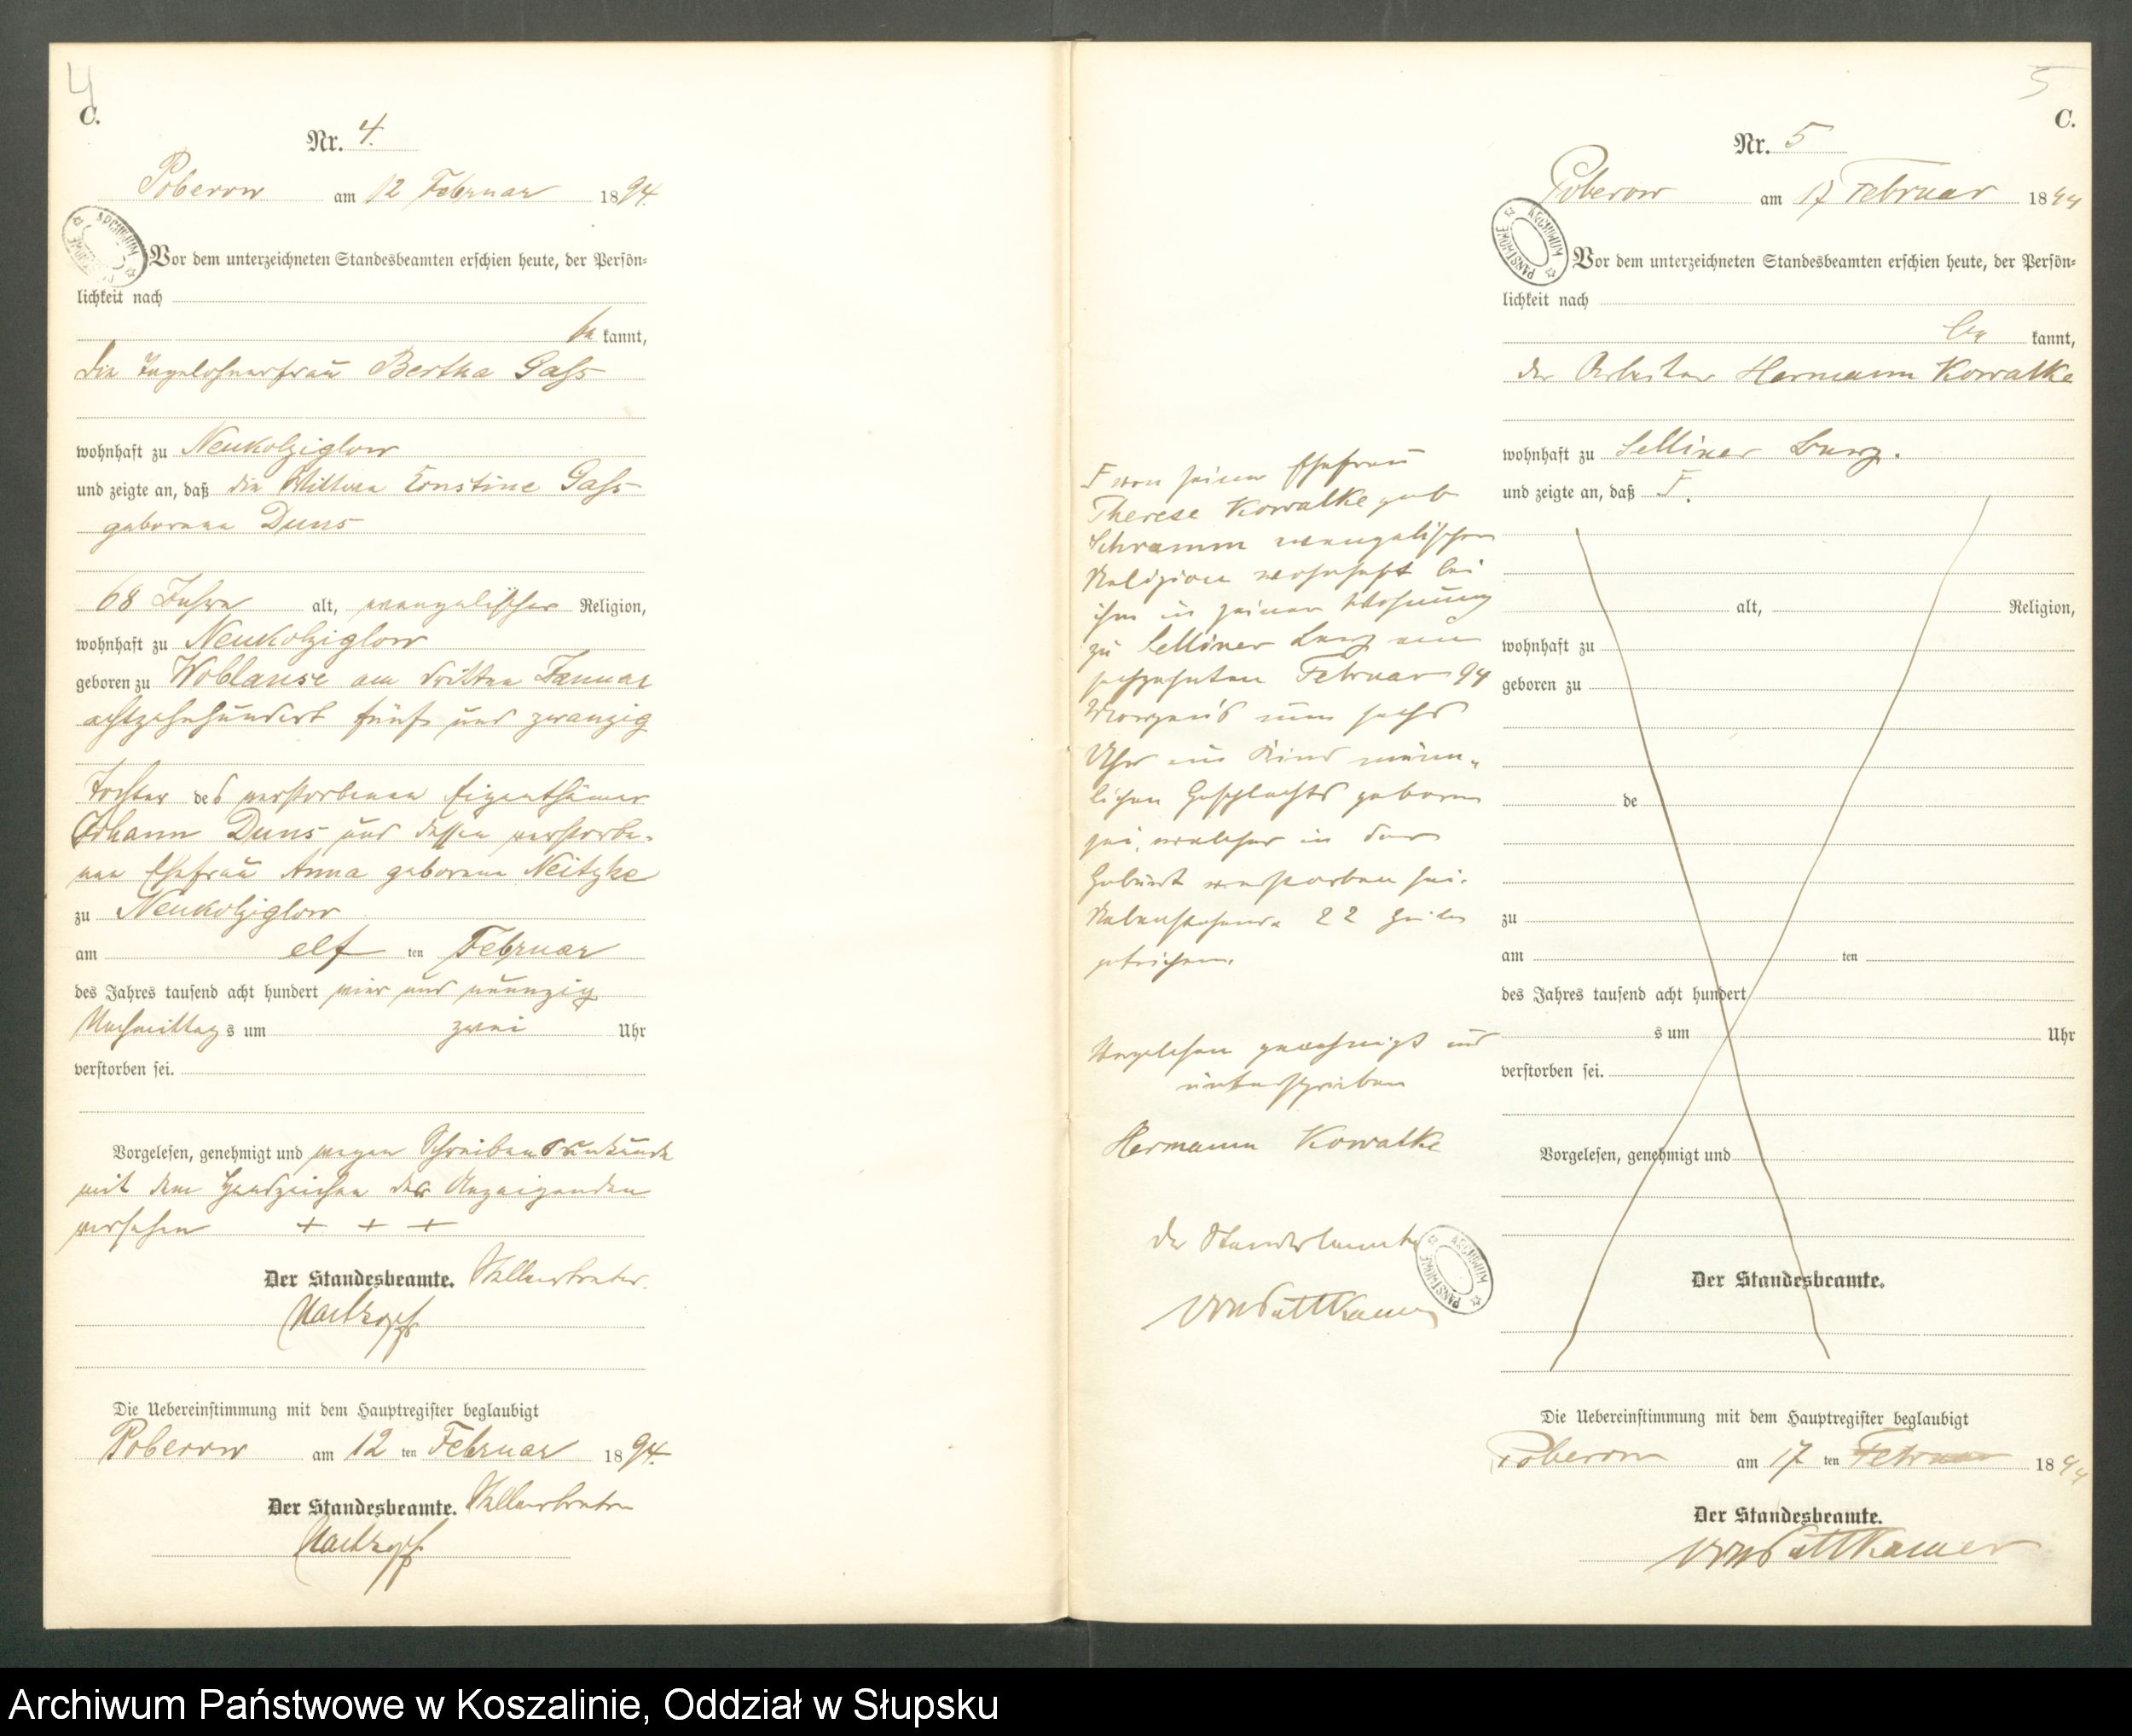 4
C.
Nr. 4.
Poberow am 12 Februar 1894.
Vor dem unterzeichneten Standesbeamten erschien heute, der Persön-
lichkeit nach
be kannt,
die Tagelöhnerfrau Bertha Gass
wohnhaft zu Neukolziglow
und zeigte an, daß die Wittwe Ernstine Gass
geborene Duns
68 Jahre alt, evangelischer Religion,
wohnhaft zu Neukolziglow
geboren zu Woblanse am dritten Januar
achtzehnhundert fünf und zwanzig
Tochter des verstorbenen Eigenthümer
Johann Duns und dessen verstorbe-
nen Ehefrau Anna geborene Neitzke
zu Neukolziglow
am elf ten Februar
des Jahres tausend acht hundert vier und neunzig
Nachmittag s um zwei Uhr
verstorben sei.
Vorgelesen, genehmigt und wegen Schreibensunkunde
mit dem Handzeichen der Anzeigenden
versehen + + +
Der Standesbeamte. Stellvertreter.
Die Uebereinstimmung mit dem Hauptregister beglaubigt
Poberow am 12 ten Februar 1894.
Der Standesbeamte. Stellvertreter
5
C.
Nr. 5
Poberow am 17 Februar 1894
ARCHIWUM PAŃSTWOWE
Vor dem unterzeichneten Standesbeamten erschien heute, der Persön-
lichkeit nach
be kannt,
der Arbeiter Hermann Kowalke
wohnhaft zu Selliner
und zeigte an, daß F.
alt, Religion,
wohnhaft zu
geboren zu
de
zu
am ten
des Jahres tausend acht hundert
s um Uhr
verstorben sei.
Vorgelesen, genehmigt und
Der Standesbeamte.
Die Uebereinstimmung mit dem Hauptregister beglaubigt
Poberow am 17 ten Februar 1894
Der Standesbeamte.
von Puttkamer
F von seiner Ehefrau
Therese Kowalke geb
Schramm evangelischer
Religion wohnhaft bei
ihm in seiner Wohnung
zu Selliner am
sechszehnten Februar 94
Morgens um sechs
Uhr ein Kind männ-
lichen Geschlechts geboren
sei, welches in der
Geburt verstorben sei.
Nebenstehende 22 Zeilen
gestrichen.
Vorgelesen genehmigt und
unterschrieben
Hermann Kowalke
der Standesbeamte
von Puttkamer
ARCHIWUM PAŃSTWOWE
Archiwum Państwowe w Koszalinie, Oddział w Słupsku